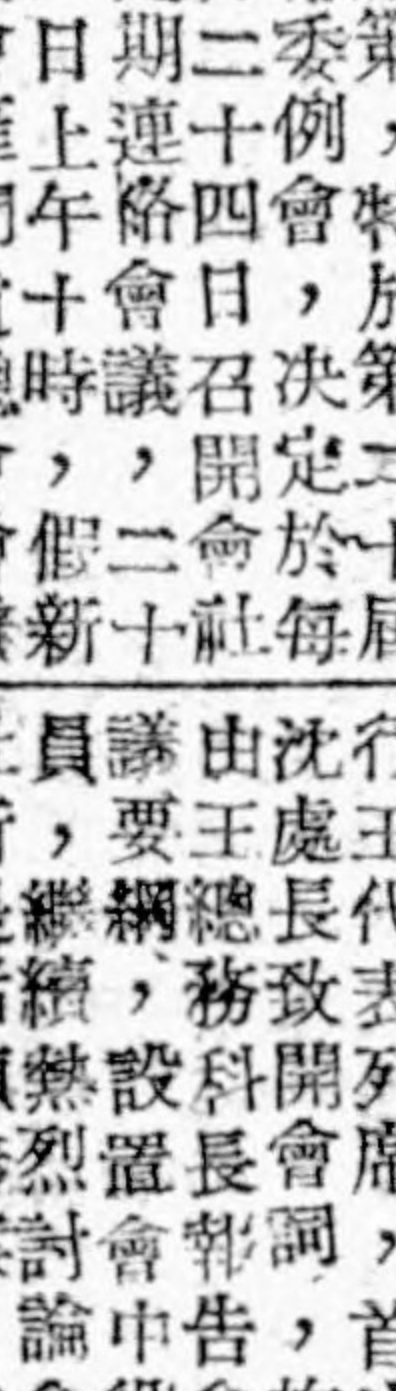 第，特於第二十屆
委例會，決定於每
二十四日召開會社
期連絡會議，二十
日上午十時，假新
行王代表列席，首
沈處長致開會詞，
由王總務科長報告
議要綱，設置會中
員，繼續熱烈討論